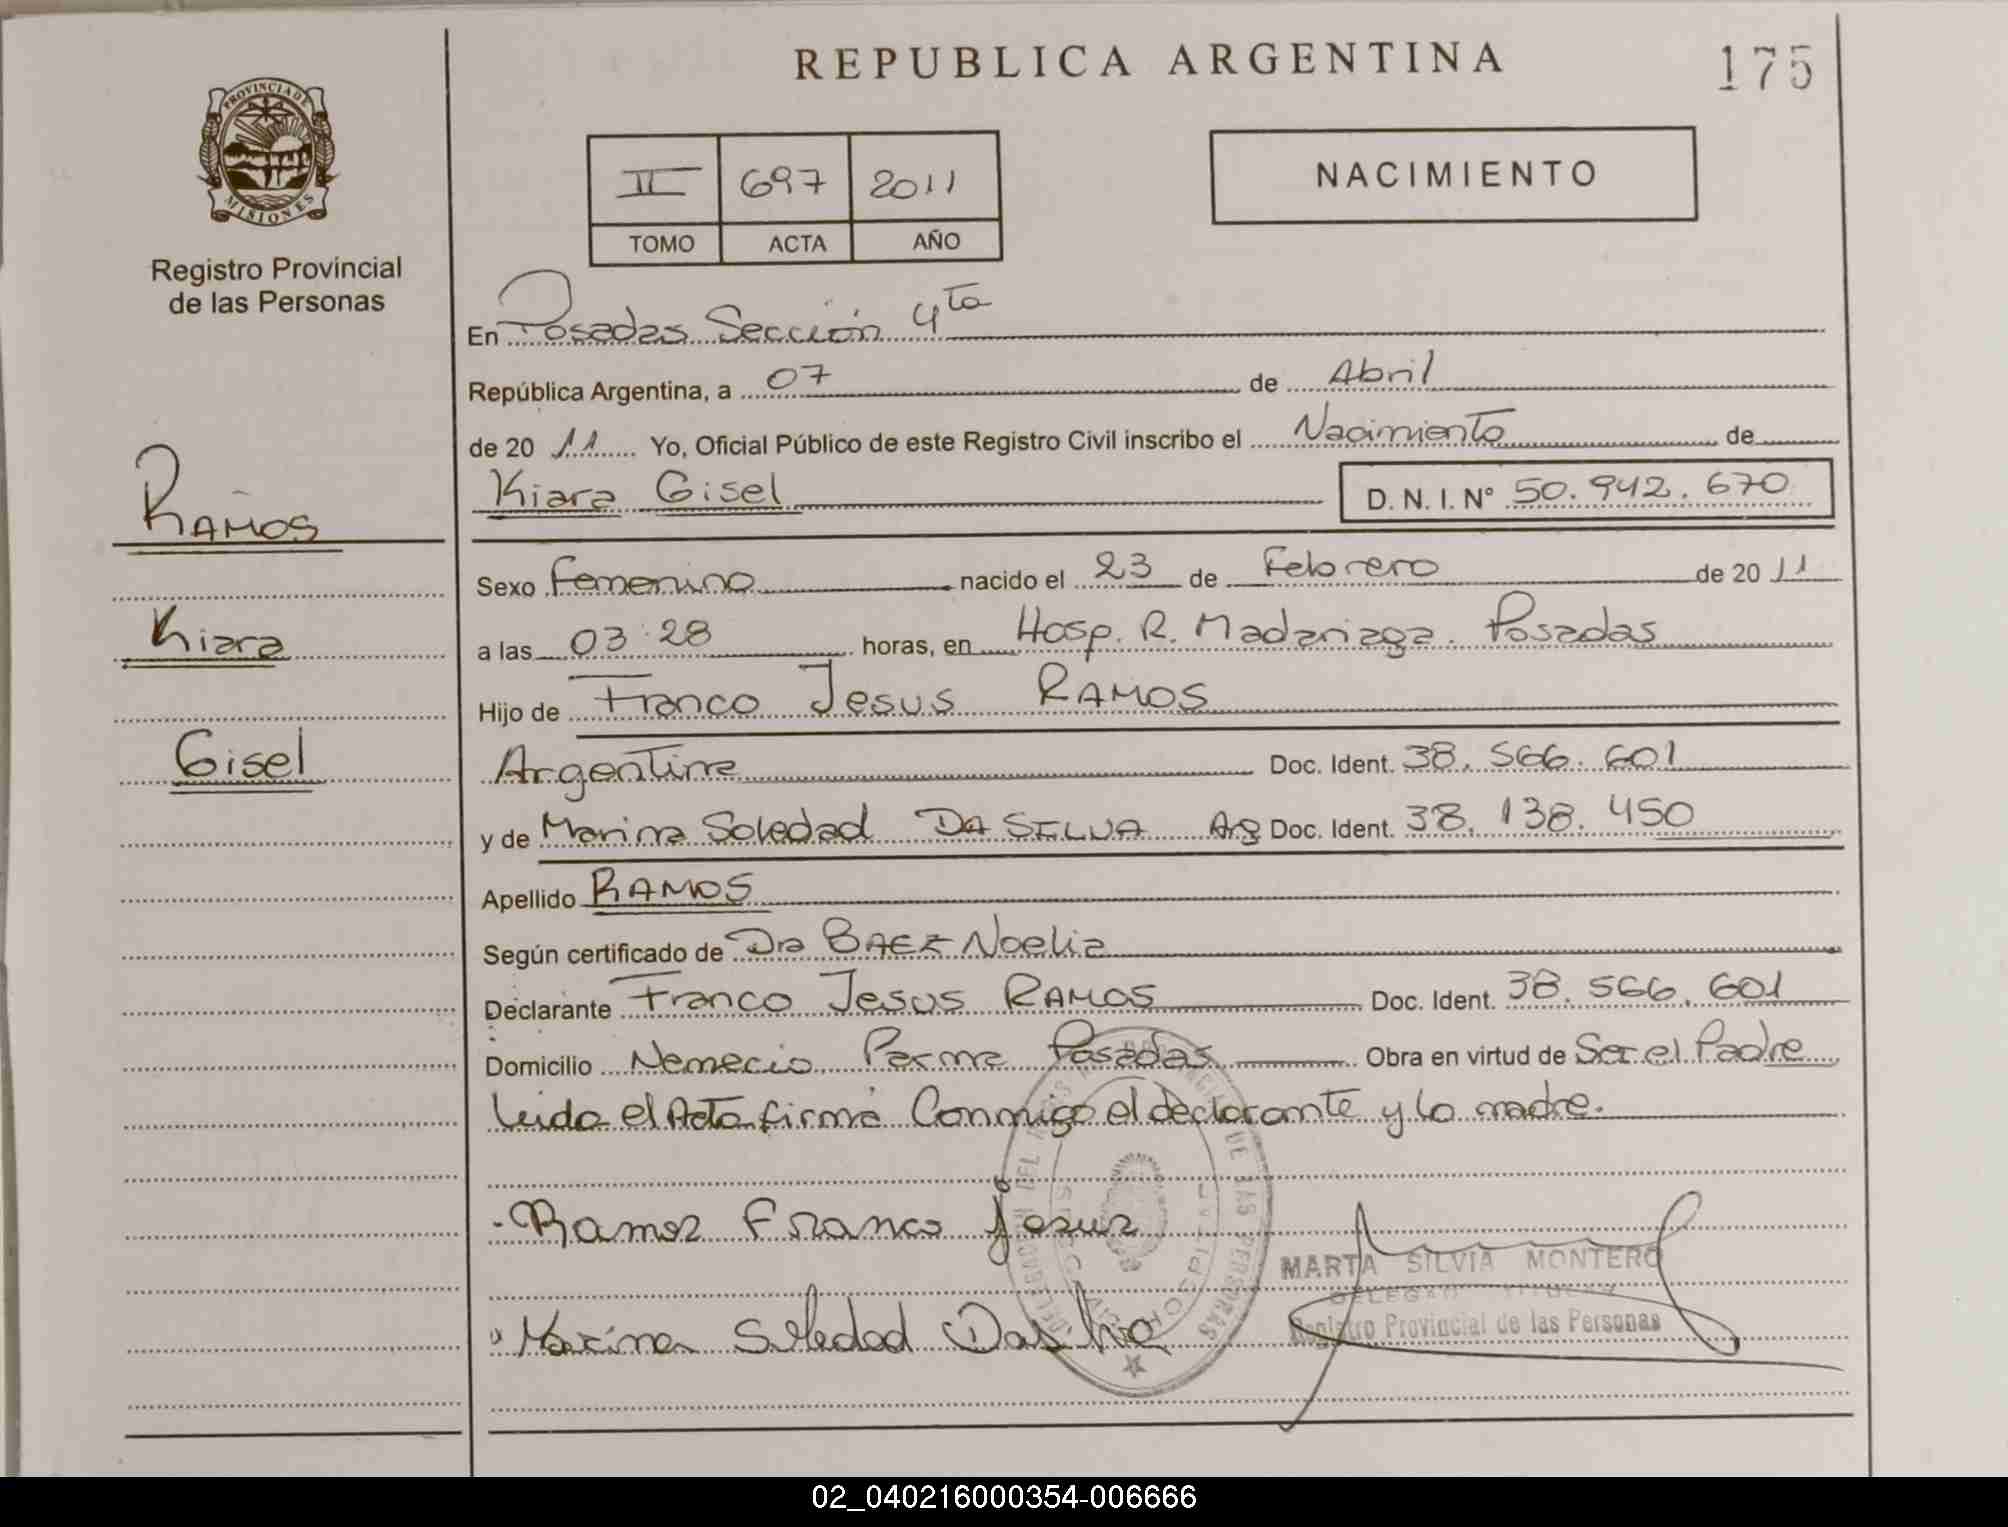 REPUBLICA ARGENTINA
175
PROVINCIA DE
MISIONES
Registro Provincial
de las Personas
II 697 2011
TOMO ACTA AÑO
NACIMIENTO
En Posadas Sección 4ta
República Argentina, a 07 de Abril
de 20 11 Yo, Oficial Público de este Registro Civil inscribo el Nacimiento de
Kiara Gisel D. N. I. N° 50.942.670
RAMOS
Kiara
Gisel
Sexo Femenino nacido el 23 de Febrero de 20 11
a las 03:28 horas, en Hosp. R. Madariaga. Posadas
Hijo de Franco Jesus RAMOS
Argentina Doc. Ident. 38.566.601
y de Marina Soledad DA SILVA Arg Doc. Ident. 38.138.450
Apellido RAMOS
Según certificado de Dra BAEZ Noelia
Declarante Franco Jesus RAMOS Doc. Ident. 38.566.601
Domicilio Nemecio Parma Posadas Obra en virtud de Ser el Padre
Leida el Acta firma Conmigo el declarante y la madre.
Ramos Franco Jesus
Marina Soledad Dasilva
MARTA SILVIA MONTERO
Registro Provincial de las Personas
02_040216000354-006666